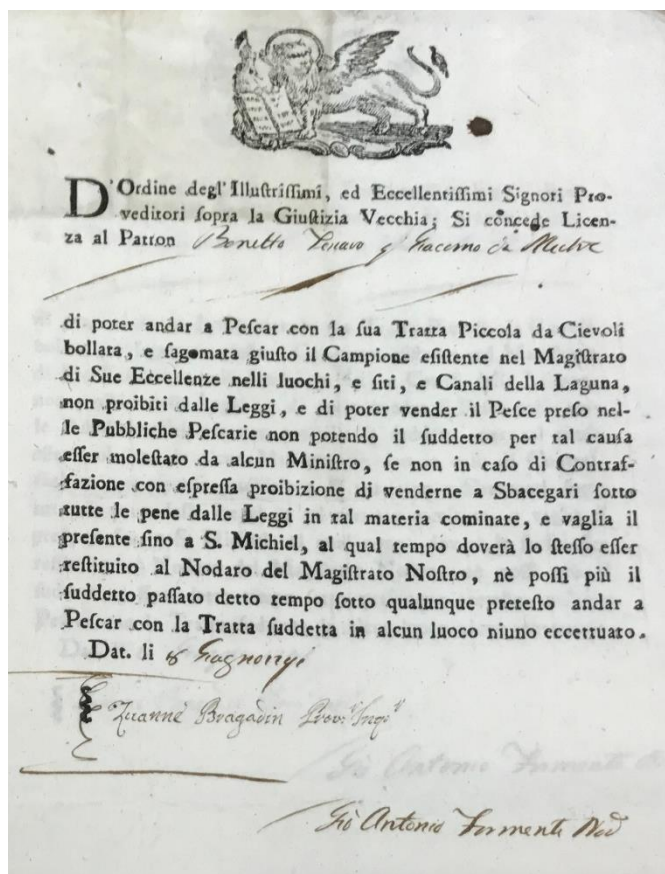 D'Ordine degl'Illuſtriſſimi, ed Eccellentiſſimi Signori Pro-
veditori ſopra la Giuſtizia Vecchia; Si concede Licen-
za al Patron Benetto Giacomo da
di poter andar a Peſcar con la ſua Tratta Piccola da Cievoli
bollata, e ſagomata giuſto il Campione eſiſtente nel Magiſtrato
di Sue Eccellenze nelli luochi, e ſiti, e Canali della Laguna,
non proibiti dalle Leggi, e di poter vender il Peſce preſo nel-
le Pubbliche Peſcarie non potendo il ſuddetto per tal cauſa
eſſer moleſtato da alcun Miniſtro, ſe non in caſo di Contraf-
fazione con eſpreſſa proibizione di venderne a Sbacegari ſotto
tutte le pene dalle Leggi in tal materia cominate, e vaglia il
preſente fino a S. Michiel, al qual tempo doverà lo ſteſſo eſſer
reſtituito al Nodaro del Magiſtrato Noſtro, nè poſſi più il
ſuddetto paſſato detto tempo ſotto qualunque preteſto andar a
Peſcar con la Tratta ſuddetta in alcun luoco niuno eccettuato.
Dat. li
Zuanne Bragadin Prov.r Inq.r
Gio Antonio Formenti Nod